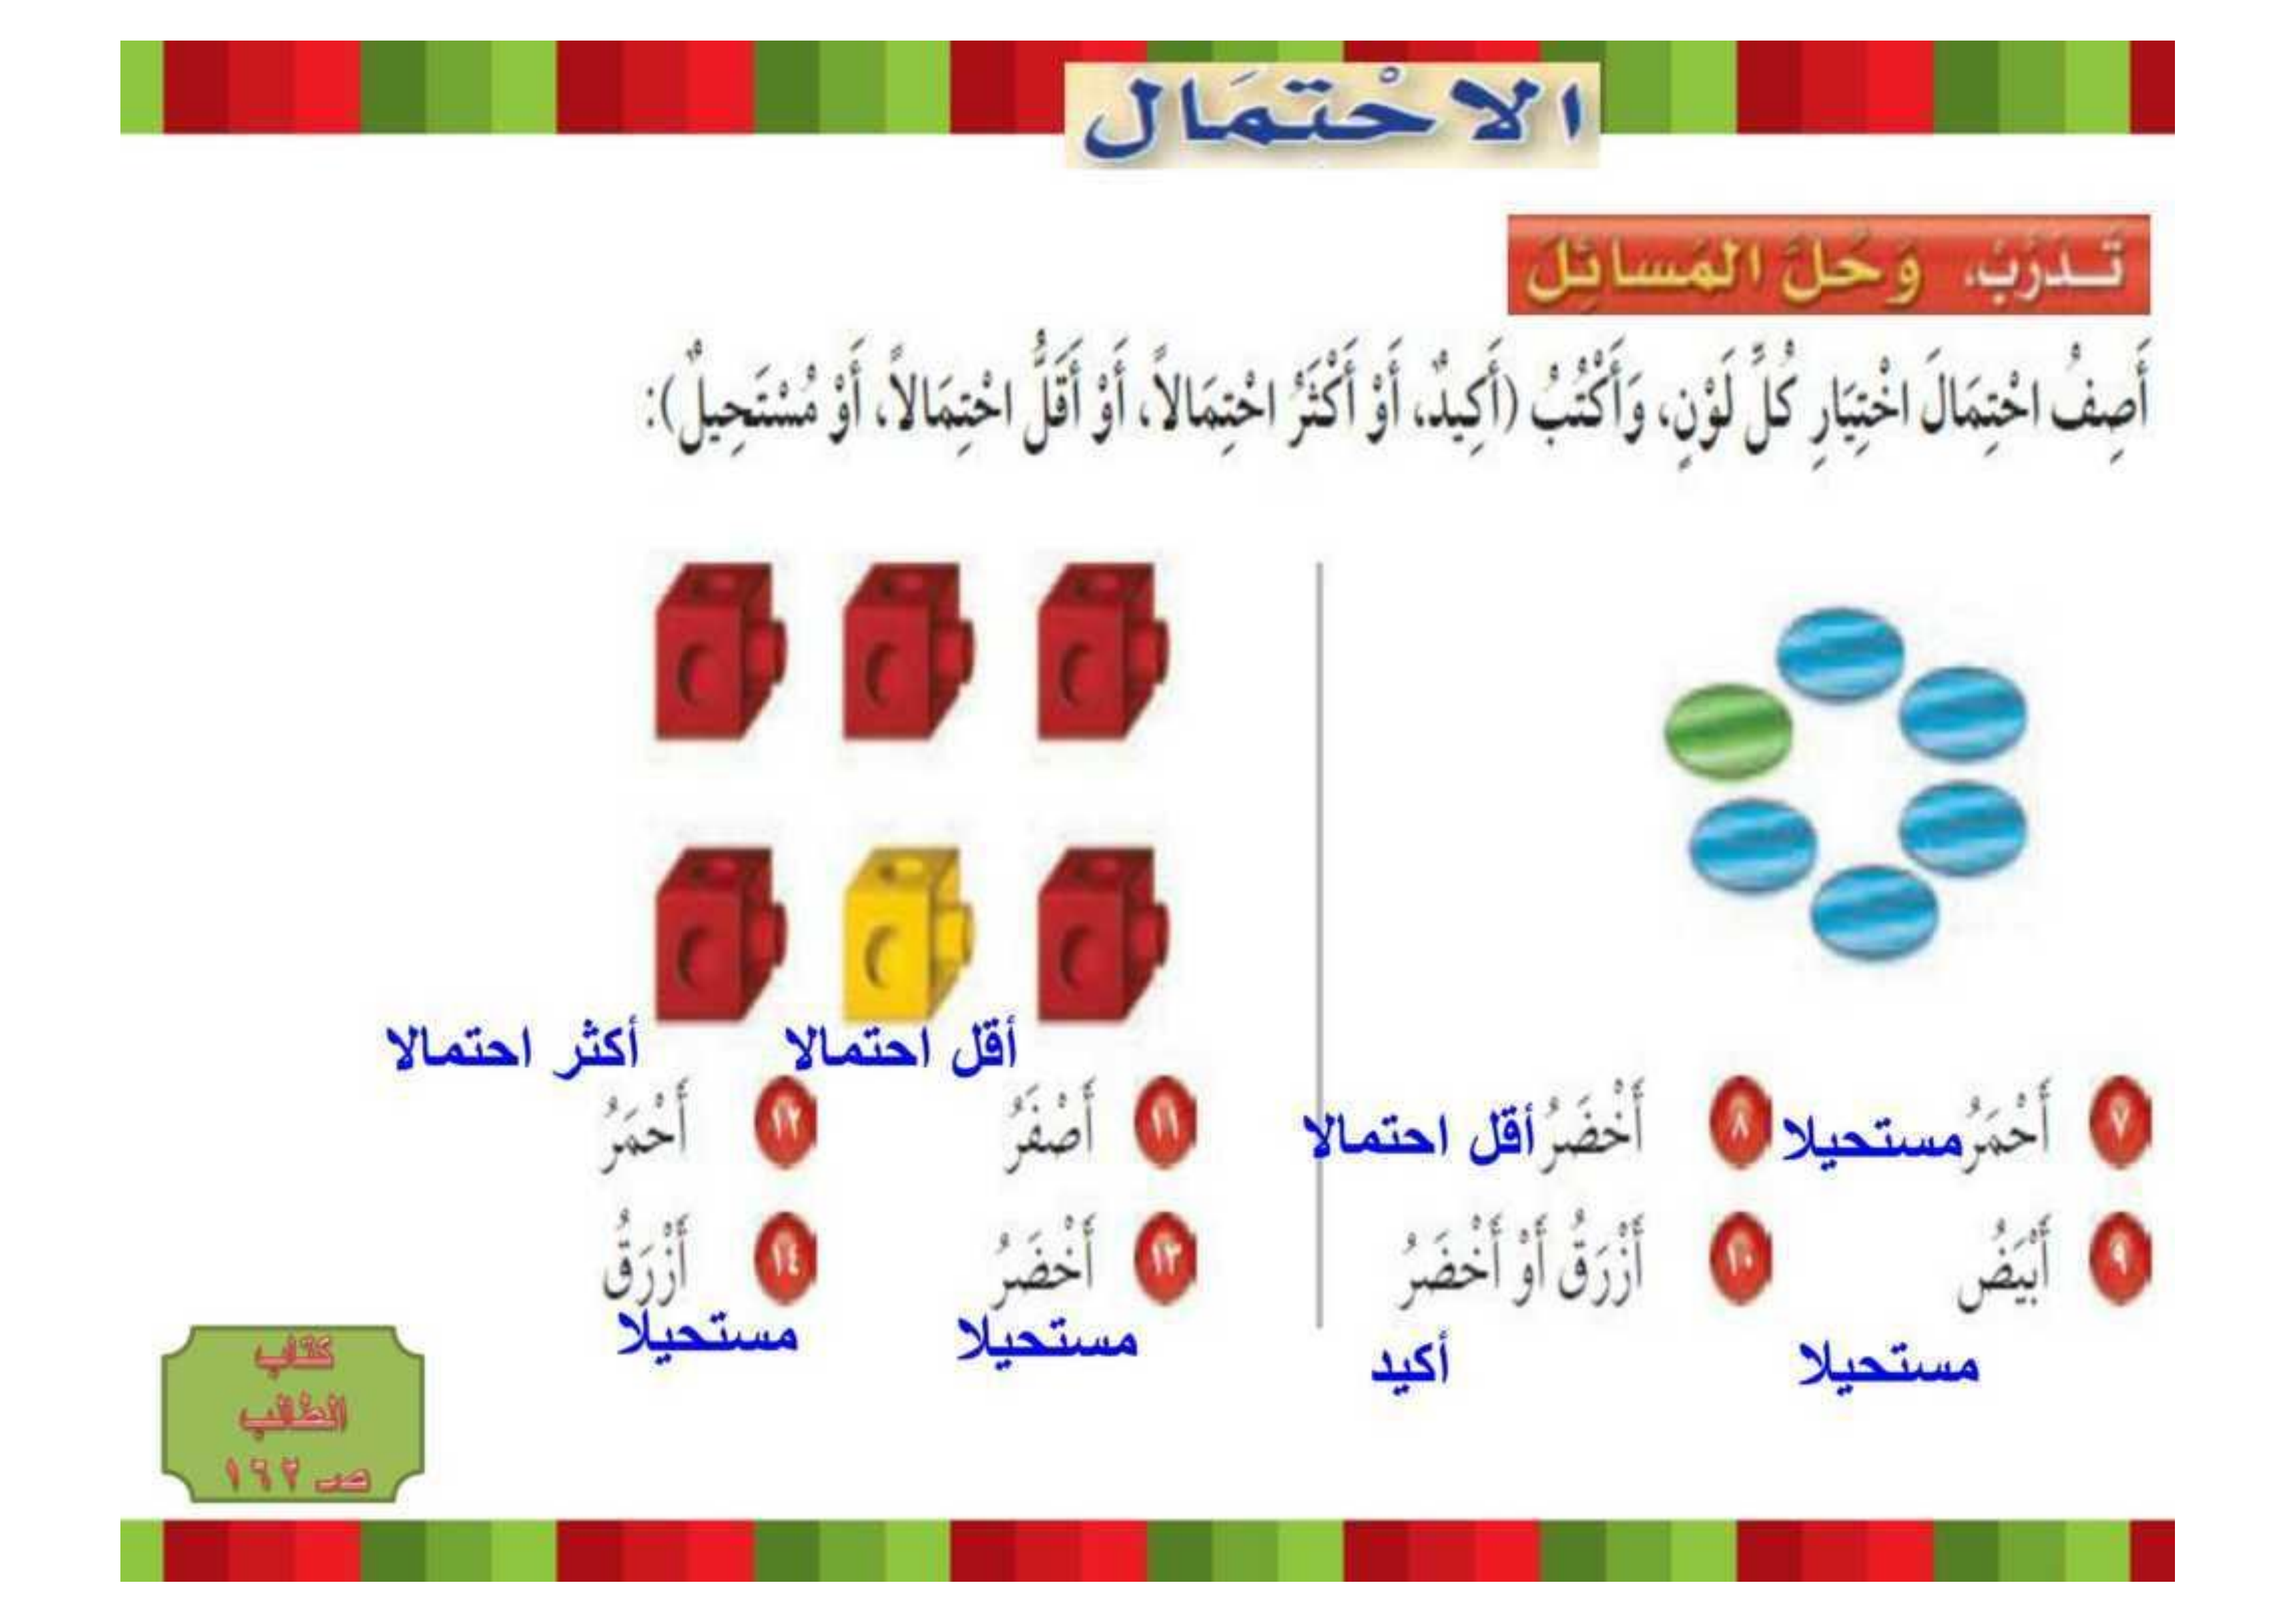 الاحْتِمَال
تَـدَرَّبْ، وَحُلَّ المَسائِلَ
أَصِفُ احْتِمَالَ اخْتِيَارِ كُلِّ لَوْنٍ، وَأَكْتُبُ (أَكِيدٌ، أَوْ أَكْثَرُ احْتِمَالاً، أَوْ أَقَلُّ احْتِمَالاً، أَوْ مُسْتَحِيلٌ):
٧ أَحْمَرُ مستحيلا
٨ أَخْضَرُ أقل احتمالا
٩ أَبْيَضُ
مستحيلا
١٠ أَزْرَقُ أَوْ أَخْضَرُ
أكيد
أقل احتمالا
١١ أَصْفَرُ
أكثر احتمالا
١٢ أَحْمَرُ
١٣ أَخْضَرُ
مستحيلا
١٤ أَزْرَقُ
مستحيلا
كتاب
الطالب
صـ ١٦٢